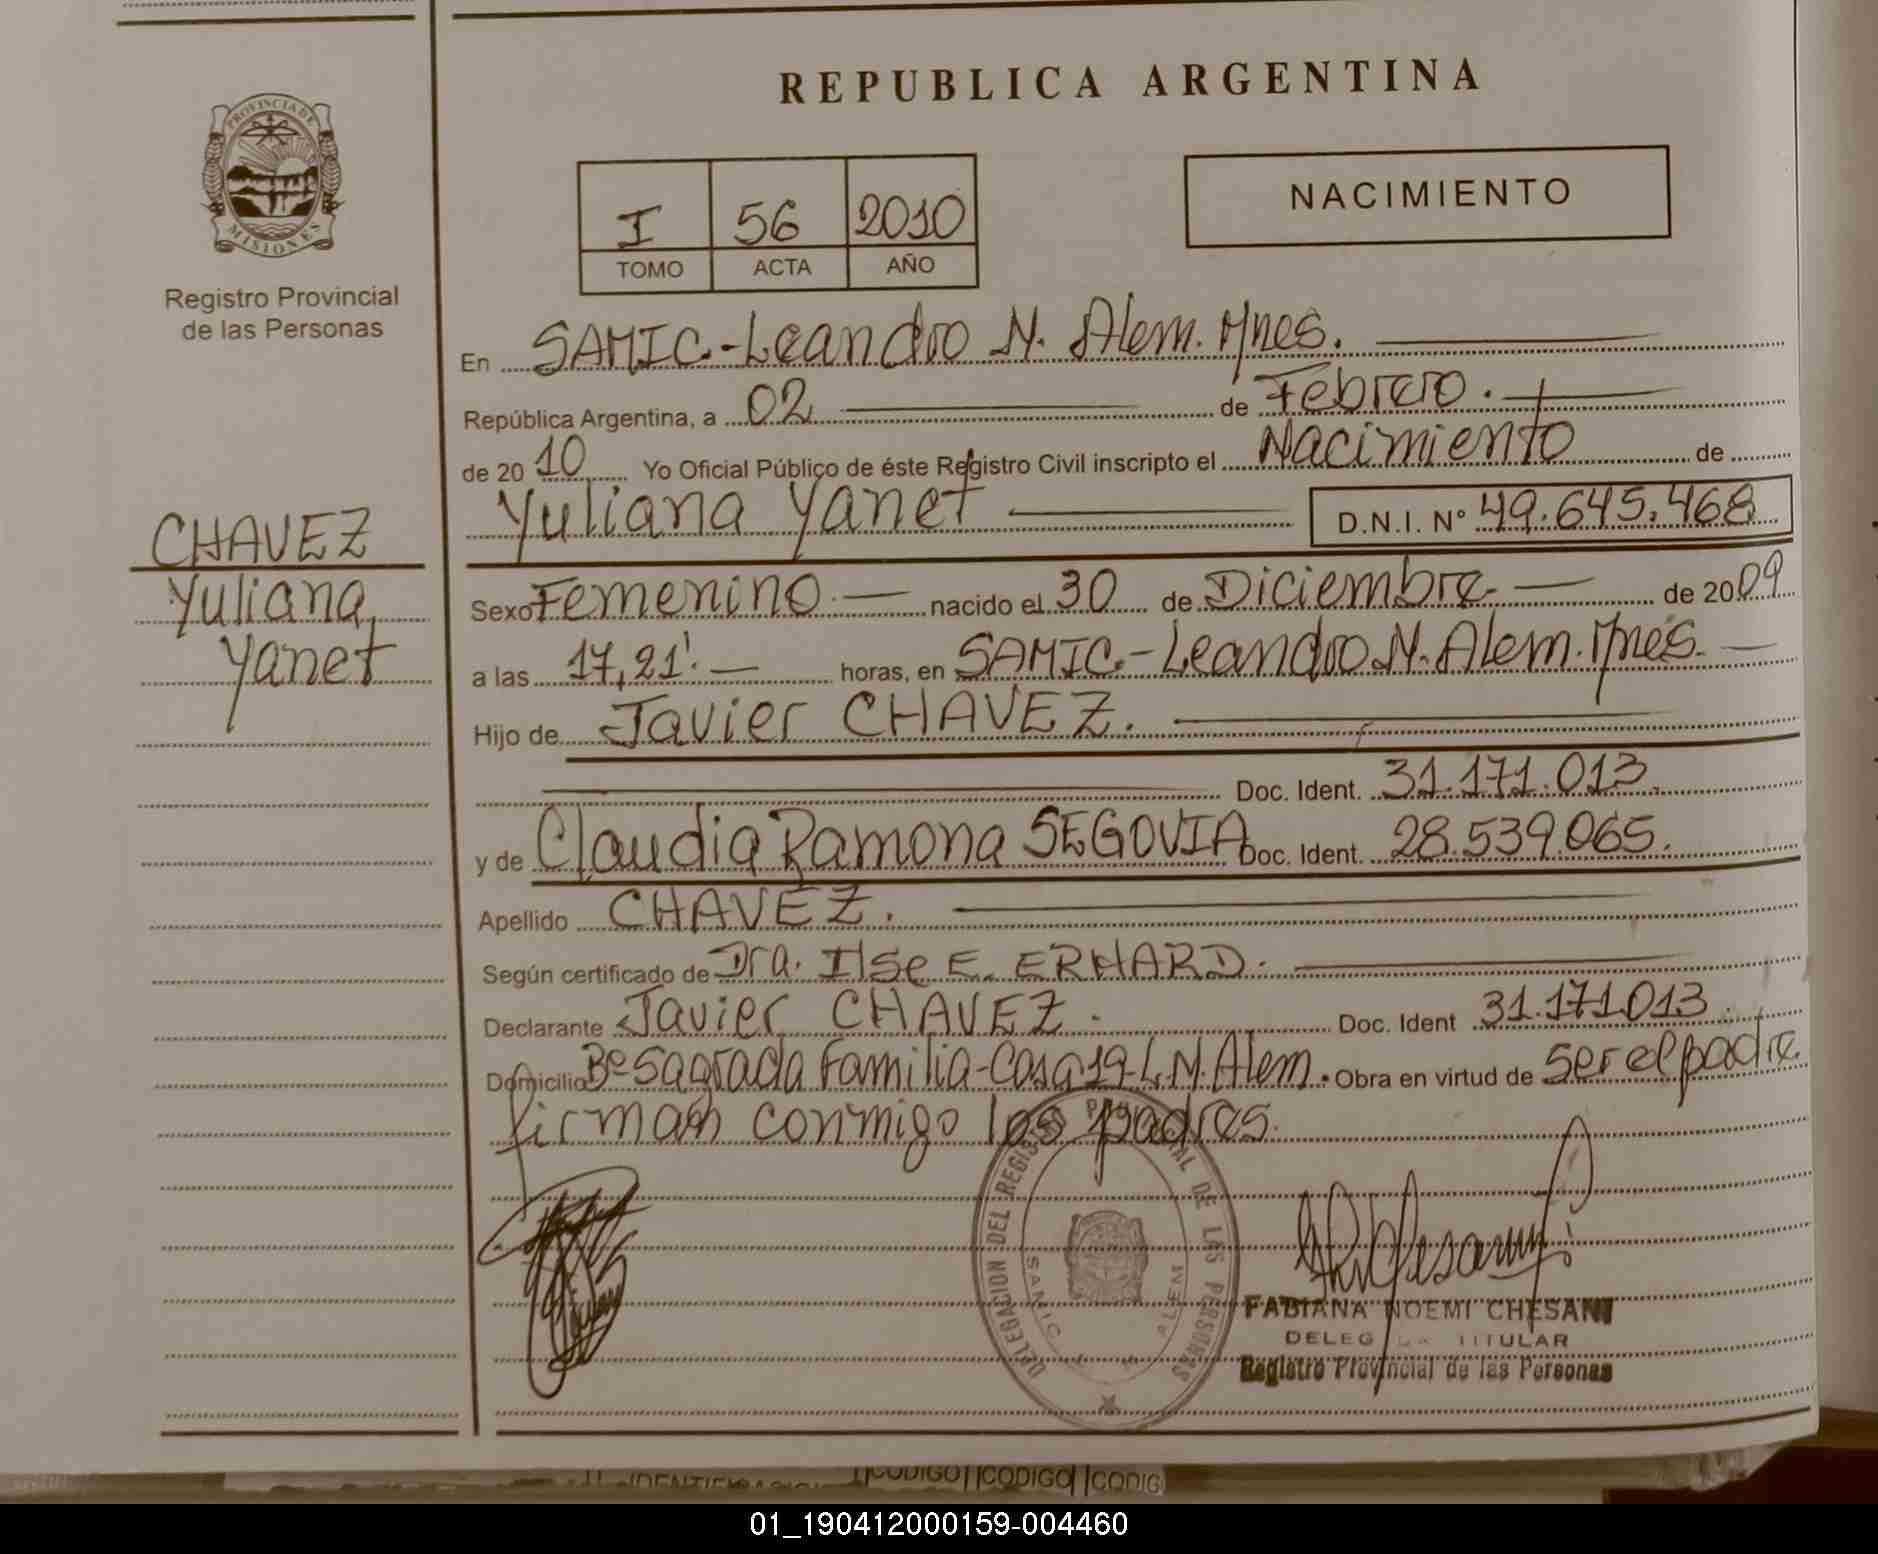 REPUBLICA ARGENTINA
PROVINCIA DE
MISIONES
Registro Provincial
de las Personas
I 56 2010
TOMO ACTA AÑO
NACIMIENTO
En SAMIC.-Leandro N. Alem. Mnes.
República Argentina, a 02 de Febrero.
de 2010 Yo Oficial Público de éste Registro Civil inscripto el Nacimiento de
Yuliana Yanet D.N.I. Nº 49.645.468
CHAVEZ
Yuliana
Yanet
Sexo Femenino. nacido el 30 de Diciembre de 2009
a las 17,21'. horas, en SAMIC.-Leandro N. Alem. Mnes.
Hijo de Javier CHAVEZ.
Doc. Ident. 31.171.013.
y de Claudia Ramona SEGOVIA Doc. Ident. 28.539.065.
Apellido CHAVEZ.
Según certificado de Dra. Ilse E. ERHARD.
Declarante Javier CHAVEZ. Doc. Ident 31.171.013.
Domicilio Bº Sagrada Familia-Casa 19-L.N. Alem. Obra en virtud de ser el padre
firman conmigo los padres.
DELEGACION DEL REGISTRO PROVINCIAL DE LAS PERSONAS
SAMIC ALEM
FABIANA NOEMI CHESANI
TITULAR
Registro Provincial de las Personas
CODIGO CODIGO CODIG
01_190412000159-004460